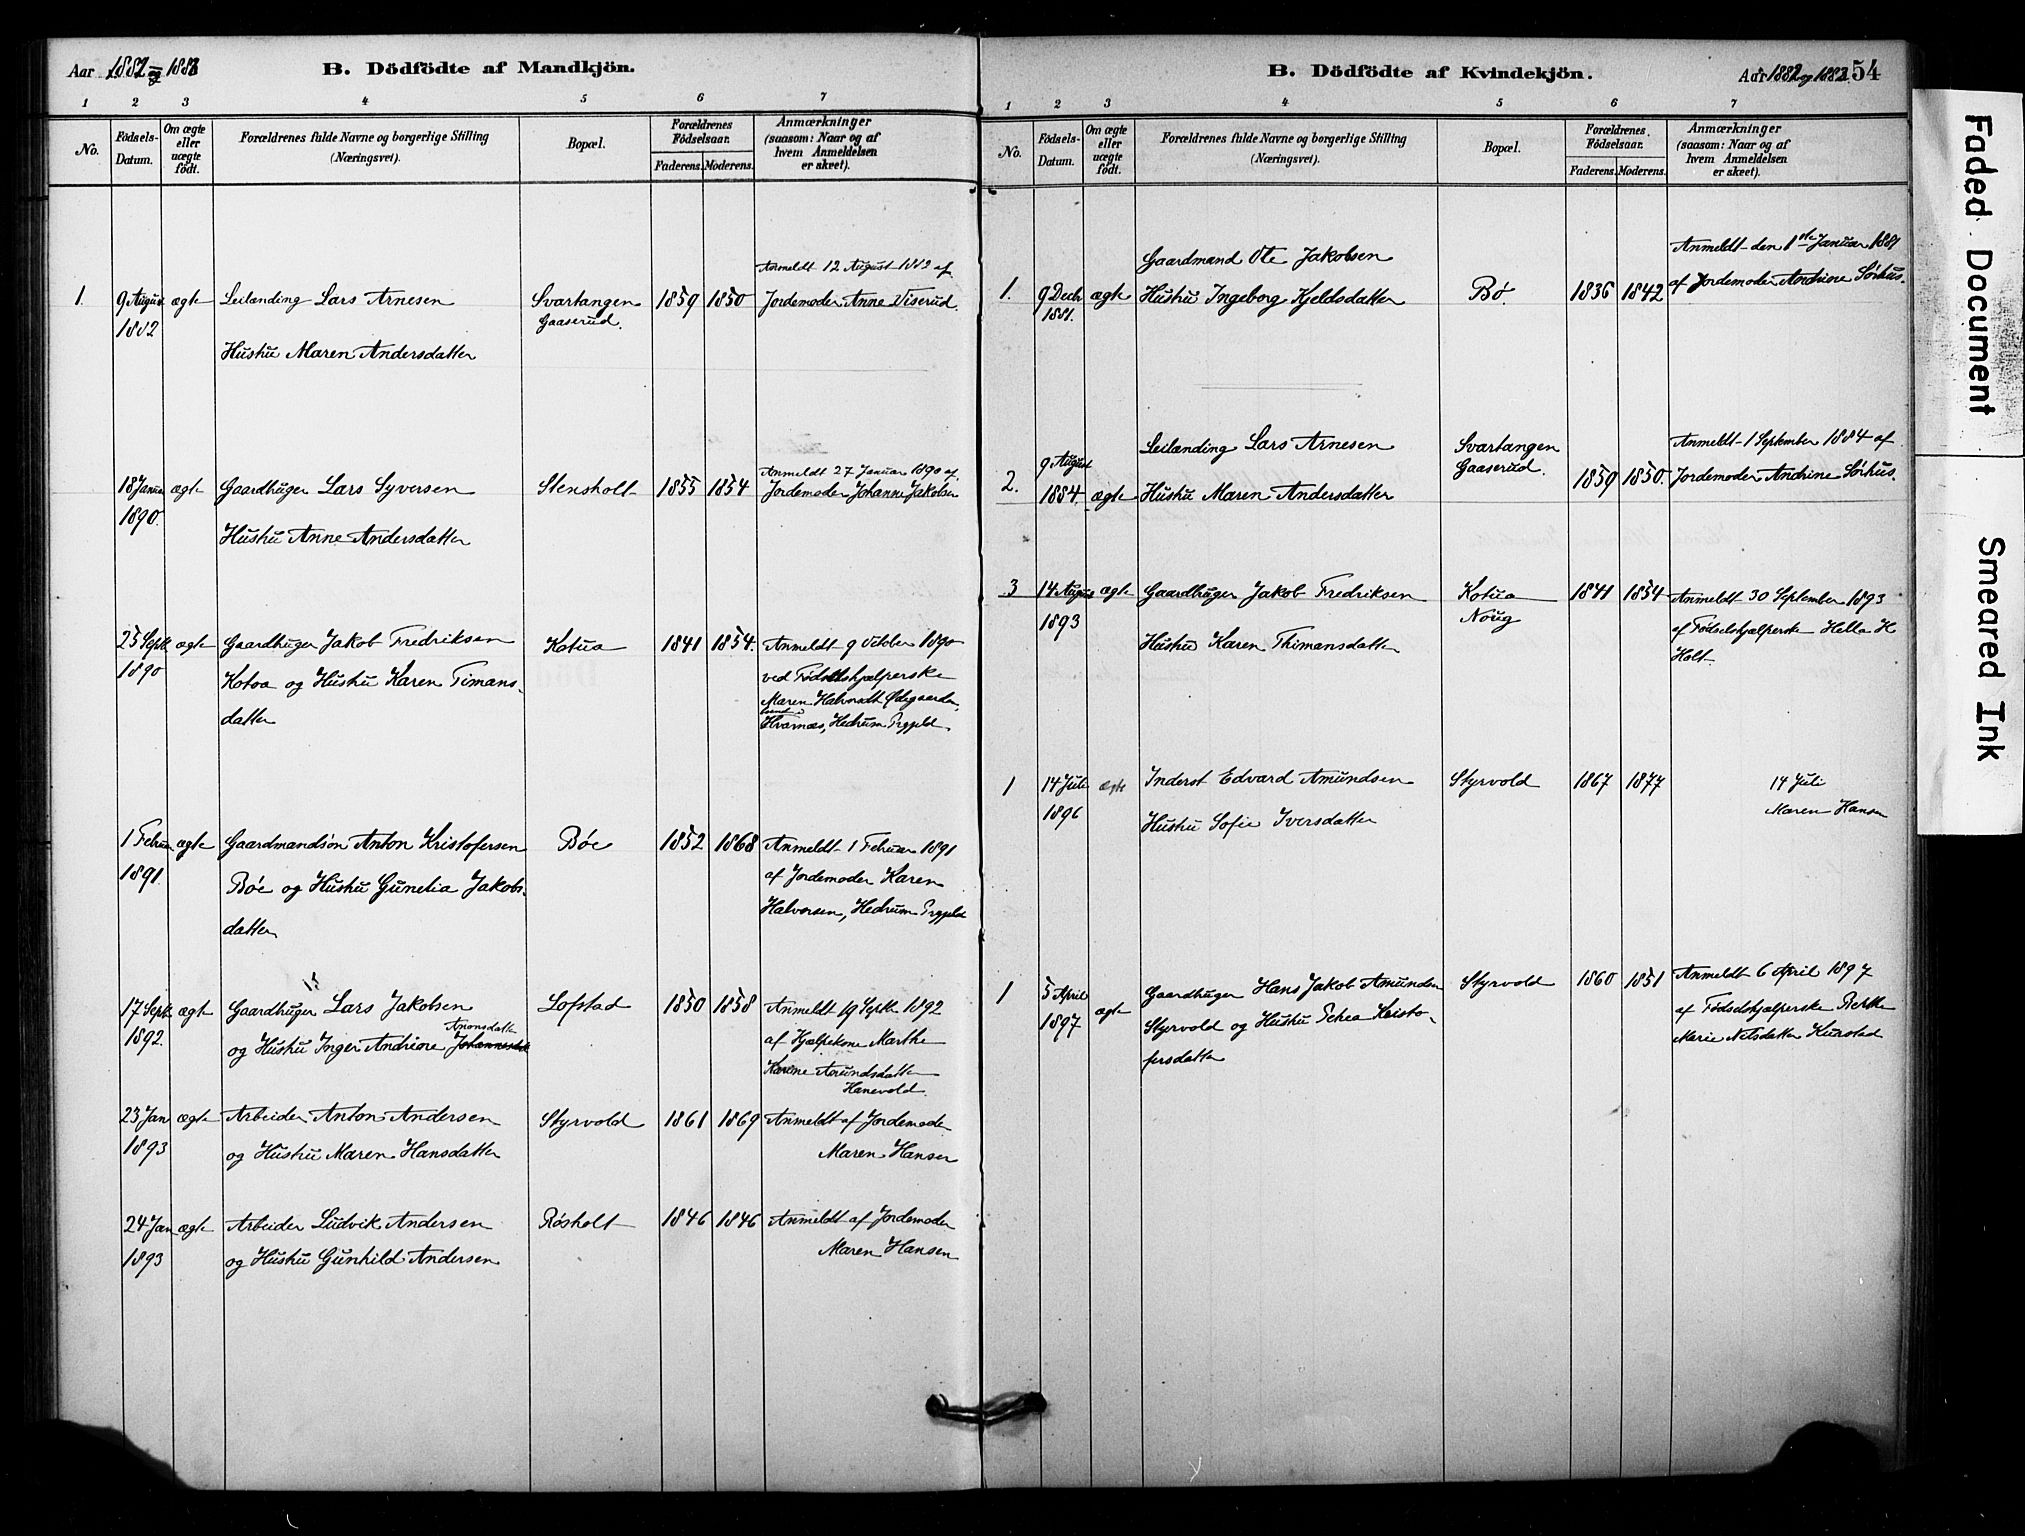 Aar 1882 og 1883
B. Dödfödte af Mandkjön.
1 2 3 4 5 6 7
No.
Födsels-Datum.
Om ægte eller uægte födt.
Forældrenes fulde Navne og borgerlige Stilling (Næringsvei).
Bopæl.
Forældrenes Födselsaar.
Faderens. Moderens.
Anmærkninger (saasom: Naar og af hvem Anmeldelsen er skeet).
Anmeldt 12 August 1882 af
1. 9 August ægte Leilænding Lars Arnesen Svartangen 1859 1850 Jordemoder Anne Viserud.
1882 Gaaserud.
Hustru Maren Andersdatter
Anmeldt 27 Januar 1890 af
18 Januar ægte Gaardbruger Lars Syversen Stensholt 1855 1854 Jordemoder Johanne Jakobsen
1890.
Hustru Anne Andersdatter
25 Sept. ægte Gaardbruger Jakob Fredriksen Kotua 1841 1854. Anmeldt 9 Oktober 1890
1890 Kotoa og Hustru Karen Timans- ved Fødselshjælperske
datter Maren Halvorsdt Ødegaarden
Hvarnæs, Hedrum Prgjeld.
1 Februar ægte Gaardmandsøn Anton Kristofersen Bøe 1852 1868 Anmeldt 1 Februar 1891
1891 Bøe og Hustru Gunelia Jakobs- af Jordemoder Karen
datter Halvorsen, Hedrum Prgjeld
17 Sept. ægte Gaardbruger Lars Jakobsen Lofstad 1850 1858 Anmeldt 19 Septr 1892
Anonsdatter
1892. og Hustru Inger Andrine Johannesdatter af Hjælpekone Marthe
Karine Amundsdatter
Hanevold.
23 Jan ægte Arbeider Anton Andersen Styrvold 1861 1869 Anmeldt af Jordemoder
1893 og Hustru Maren Hansdatter Maren Hansen
24 Jan ægte Arbeider Ludvik Andersen Røsholt 1846 1846 Anmeldt af Jordemoder
1893 og Hustru Gunhild Andersen Maren Hansen
B. Dödfödte af Kvindekjön.
Aar 1882 og 1883
54
1 2 3 4 5 6 7
No.
Födsels-Datum.
Om ægte eller uægte födt.
Forældrenes fulde Navne og borgerlige Stilling (Næringsvei).
Bopæl.
Forældrenes Födselsaar.
Faderens. Moderens.
Anmærkninger (saasom: Naar og af hvem Anmeldelsen er skeet).
Gaardmand Ole Jakobsen Anmeldt den 1ste Januar 1881
1. 9 Decbr ægte Hustru Ingeborg Kjeldsdatter Bø. 1836 1842 af Jordemoder Andrine Sørhus.
1881.
Leilænding Lars Arnesen Svartangen Anmeldt 1 September 1884 af
9 August Gaaserud.
2. 1884. ægte Hustru Maren Andersdatter 1859 1850. Jordemoder Andrine Sørhus.
3 14 August ægte Gaardbruger Jakob Fredriksen Kotua 1841 1854 Anmeldt 30 September 1893
1893 Hustru Karen Thimansdatter af Fødselshjælperske Hella H
Holt
1 14 Juli ægte Inderst Edvard Amundsen Styrvold 1867 1877 14 Juli
1896 Hustru Sofie Iversdatter Maren Hansen
1 5 April ægte Gaardbruger Hans Jakob Amundsen Styrvold 1860 1851 Anmeldt 6 April 1897
1897 Styrvold og Hustru Kristo- af Fødselshjælperske Berthe
fersdatter Marie Nilsdatter
Faded Document
Smeared Ink